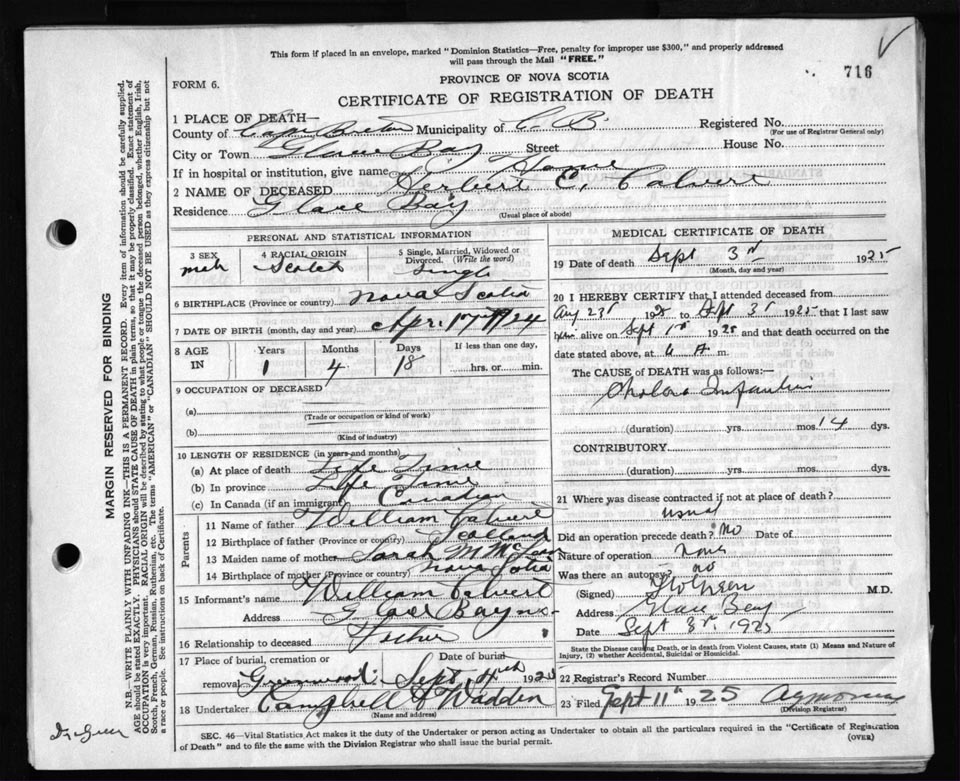 This form if placed in an envelope, marked "Dominion Statistics—Free, penalty for improper use $300," and properly addressed
will pass through the Mail "FREE."
716
PROVINCE OF NOVA SCOTIA
FORM 6.
CERTIFICATE OF REGISTRATION OF DEATH
1 PLACE OF DEATH—
County of Cape Breton Municipality of C B Registered No.
(For use of Registrar General only)
City or Town Glace Bay Street House No.
If in hospital or institution, give name Home
2 NAME OF DECEASED Herbert C. Calvert
Residence Glace Bay
(Usual place of abode)
PERSONAL AND STATISTICAL INFORMATION
3 SEX 4 RACIAL ORIGIN 5 Single, Married, Widowed or
Divorced. (Write the word)
male Scotch Single
6 BIRTHPLACE (Province or country) Nova Scotia
7 DATE OF BIRTH (month, day and year) Apr. 17th 1924
8 AGE Years Months Days If less than one day,
IN 1 4 18 hrs. or min.
9 OCCUPATION OF DECEASED
(a)
(Trade or occupation or kind of work)
(b)
(Kind of industry)
10 LENGTH OF RESIDENCE (in years and months)
(a) At place of death Life Time
(b) In province Life Time
(c) In Canada (if an immigrant) Canadian
Parents
11 Name of father William Calvert
12 Birthplace of father (Province or country) Scotland
13 Maiden name of mother Sarah M
14 Birthplace of mother (Province or country) Nova Scotia
15 Informant's name William Calvert
Address Glace Bay N.S.
16 Relationship to deceased Father
17 Place of burial, cremation or Date of burial
removal Greenwood Sept. 4th 1925
18 Undertaker Campbell & Wadden
(Name and address)
MEDICAL CERTIFICATE OF DEATH
19 Date of death Sept 3rd 1925
(Month, day and year)
20 I HEREBY CERTIFY that I attended deceased from
Aug 23r 1925 to Sept 3r 1925 that I last saw
him alive on Sept 1st 1925 and that death occurred on the
date stated above, at A m.
The CAUSE of DEATH was as follows:—
Cholera Infantum
(duration) yrs. mos 14 dys.
CONTRIBUTORY
(duration) yrs. mos. dys.
21 Where was disease contracted if not at place of death?
usual
Did an operation precede death? No Date of
Nature of operation None
Was there an autopsy? no
(Signed) M.D.
Address Glace Bay
Date Sept 3r. 1925
State the Disease causing Death, or in death from Violent Causes, state (1) Means and Nature of
Injury, (2) whether Accidental, Suicidal or Homicidal.
22 Registrar's Record Number
23 Filed Sept 11th 1925
(Division Registrar)
SEC. 46—Vital Statistics Act makes it the duty of the Undertaker or person acting as Undertaker to obtain all the particulars required in the "Certificate of Registration
of Death" and to file the same with the Division Registrar who shall issue the burial permit.
(OVER)
MARGIN RESERVED FOR BINDING
N.B.—WRITE PLAINLY WITH UNFADING INK—THIS IS A PERMANENT RECORD. Every item of information should be carefully supplied.
AGE should be stated EXACTLY. PHYSICIANS should STATE CAUSE OF DEATH in plain terms, so that it may be properly classified. Exact statement of
OCCUPATION is very important. RACIAL ORIGIN will be described by stating to what people or tongue the deceased person belonged, whether English, Irish,
Scotch, French, German, Russian, Ruthenian, etc. The terms "AMERICAN" or "CANADIAN" SHOULD NOT BE USED as they express citizenship but not
a race or people. See instructions on back of Certificate.